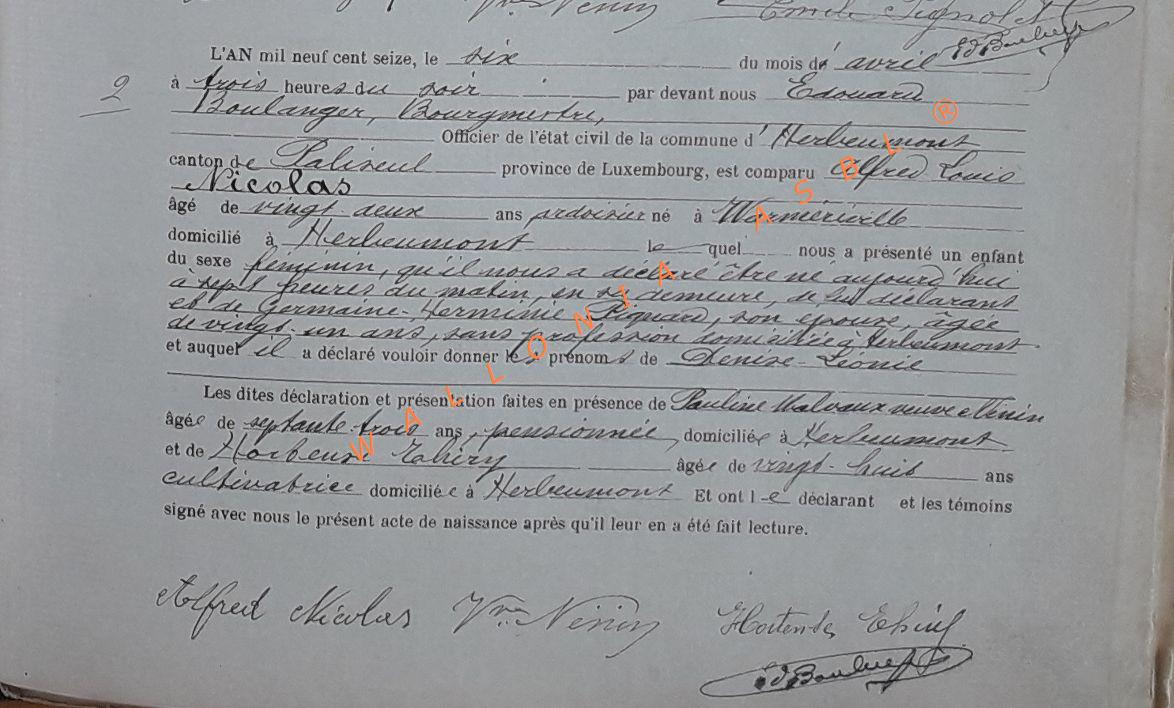 Vve Nénin Emile Pignolet
Ed Boulanger
L'AN mil neuf cent seize, le six du mois d' avril
2
à trois heures du soir par devant nous Edouard
Boulanger, Bourgmestre,
Officier de l'état civil de la commune d' Herbeumont
canton de Paliseul province de Luxembourg, est comparu Alfred Louis
Nicolas
âgé de vingt-deux ans ardoisier né à Warmériville
domicilié à Herbeumont lequel nous a présenté un enfant
du sexe féminin, qu'il nous a déclaré être né aujourd'hui
à sept heures du matin, en sa demeure, de lui déclarant
et de Germaine-Herminie Pignard, son épouse, âgée
de vingt-un ans, sans profession domiciliée à Herbeumont
et auquel il a déclaré vouloir donner les prénoms de Denise-Léonie
Les dites déclaration et présentation faites en présence de Pauline Malvaux veuve Nénin
âgée de septante-trois ans, pensionnée, domiciliée à Herbeumont
et de Hortense Thiry âgée de vingt-huit ans
cultivatrice domiciliée à Herbeumont Et ont le déclarant et les témoins
signé avec nous le présent acte de naissance après qu'il leur en a été fait lecture.
Alfred Nicolas Vve Nénin Hortense Thiry
Ed Boulanger
WALLONIA ASBL ®